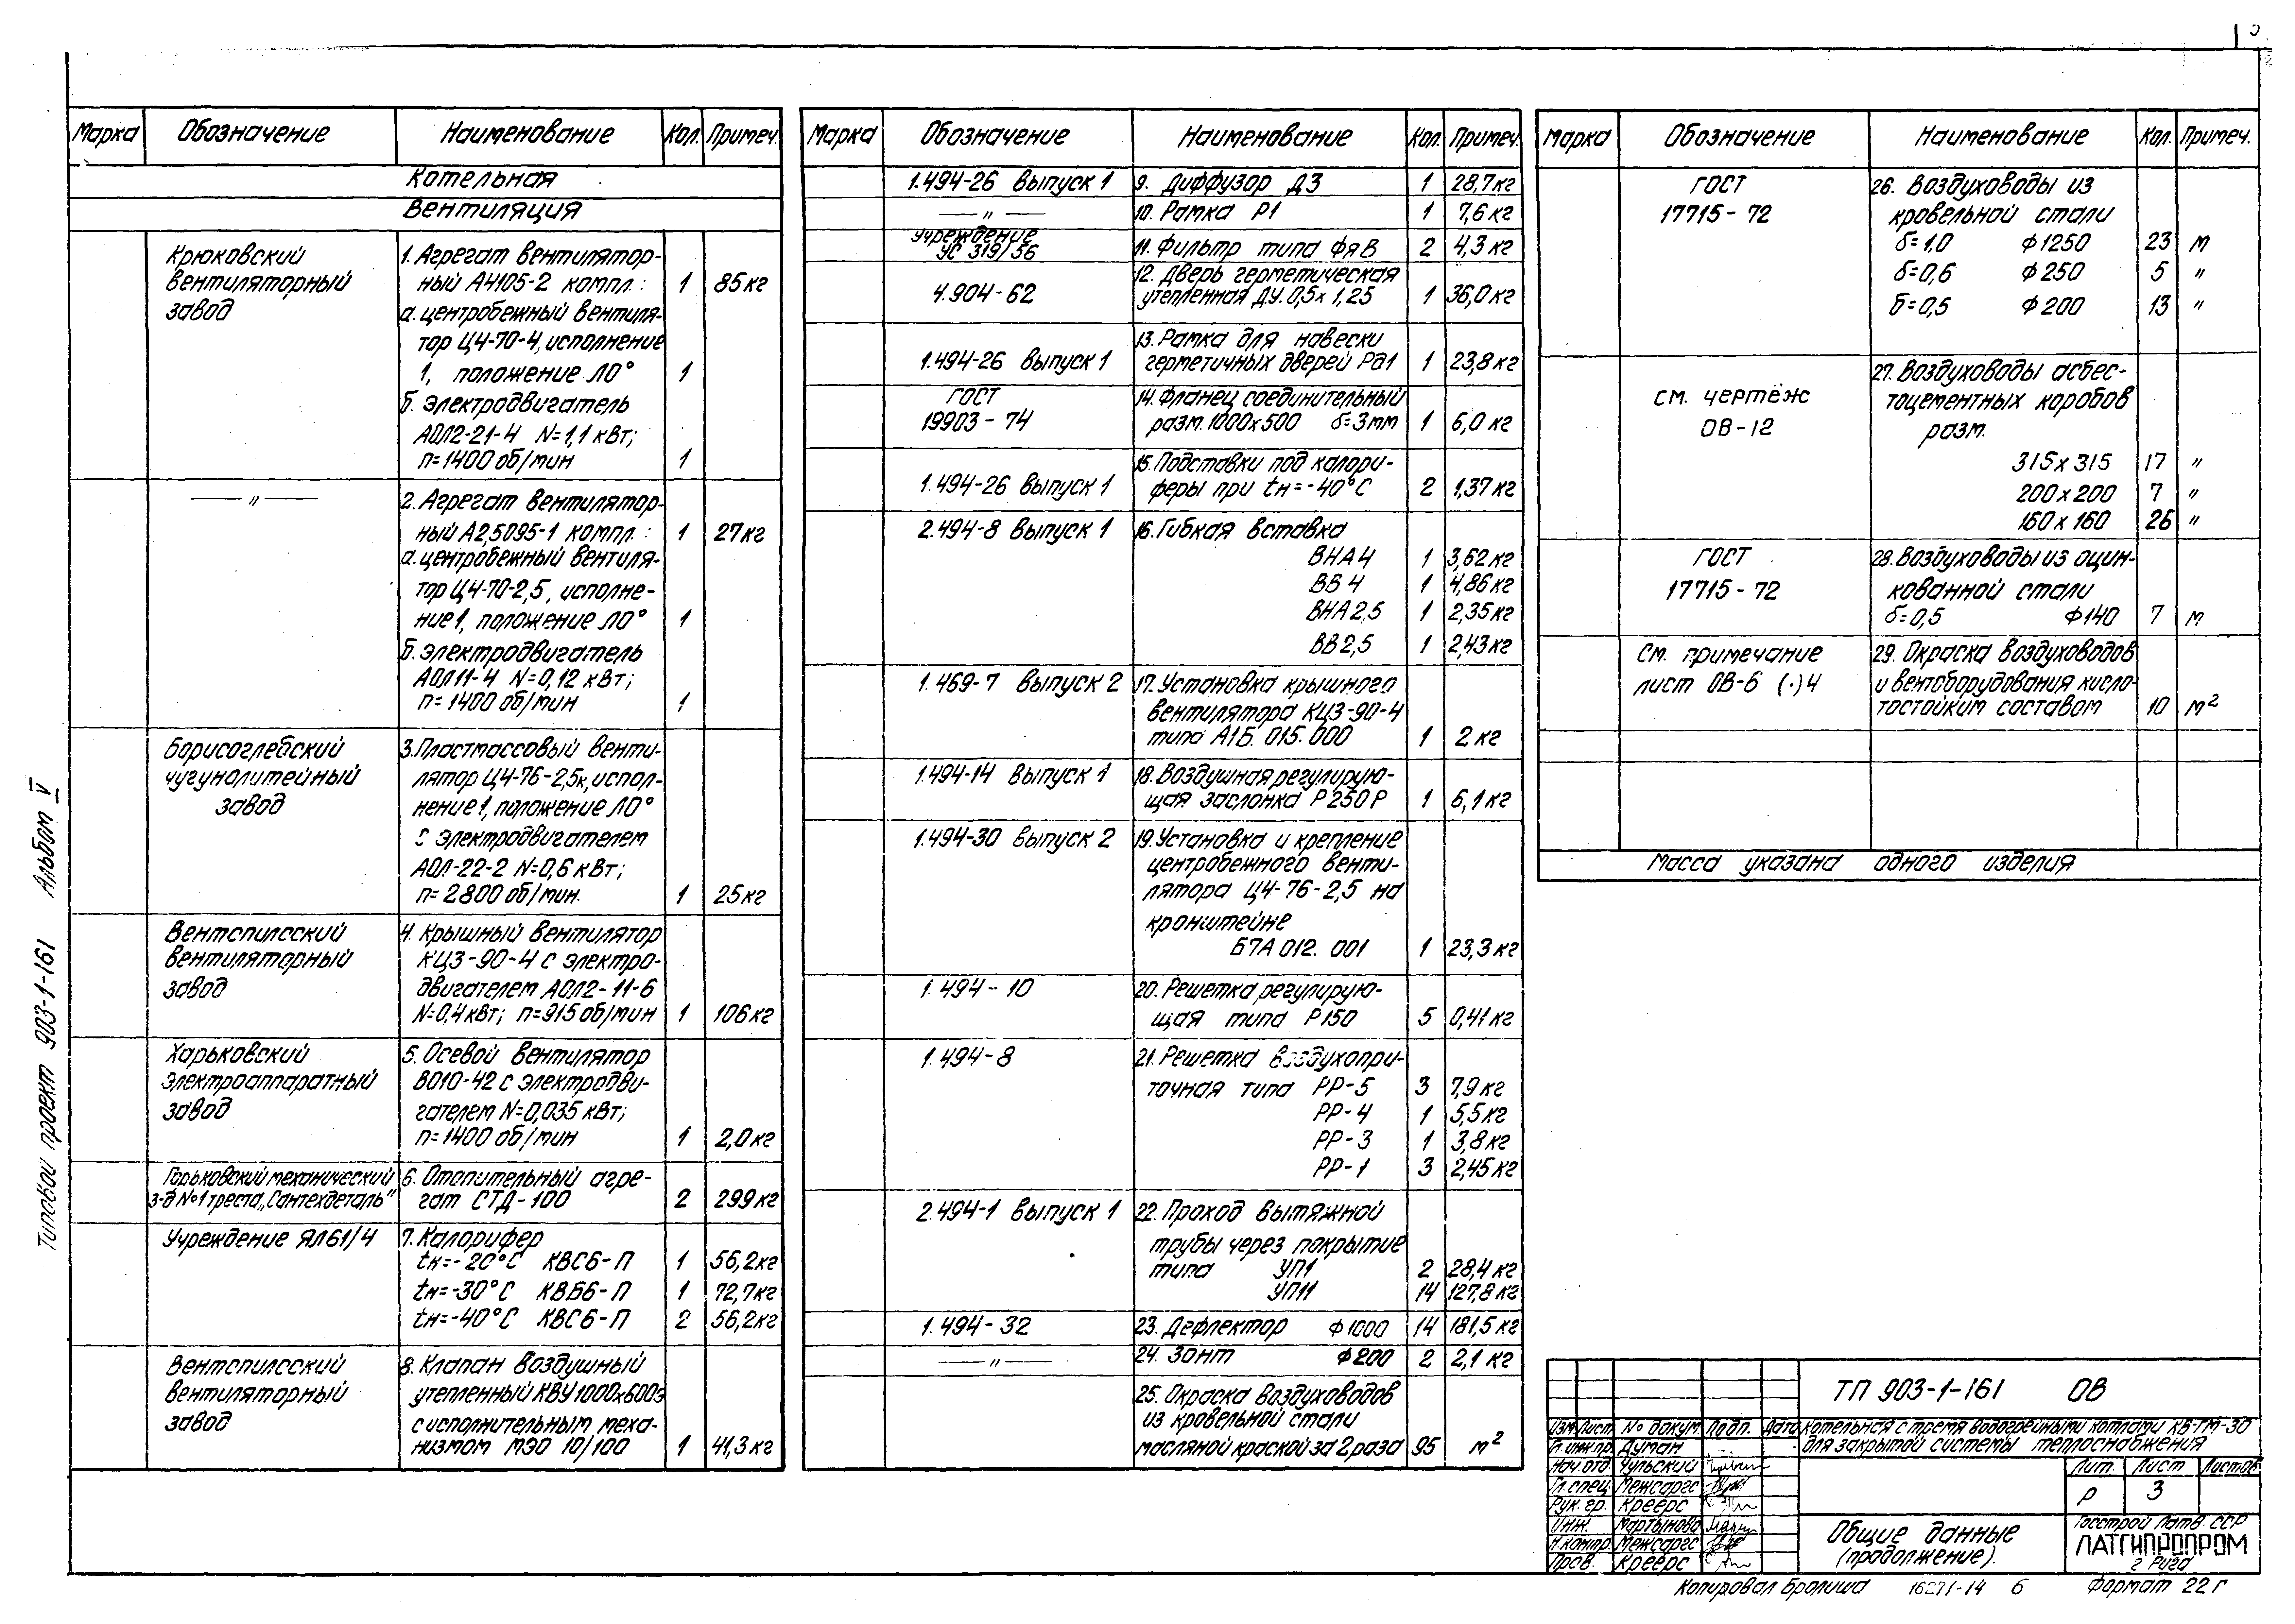 Марка Обозначение Наименование Кол. Примеч.
Котельная
Вентиляция
Крюковский
вентиляторный
завод
1. Агрегат вентилятор-
ный А4105-2 компл.: 1 85кг
а. центробежный вентиля-
тор Ц4-70-4, исполнение
1, положение Л0° 1
б. электродвигатель
АОЛ2-21-4 N=1,1 кВт;
n=1400 об/мин 1
— " —
2. Агрегат вентилятор-
ный А2,5095-1 компл.: 1 27кг
а. центробежный вентиля-
тор Ц4-70-2,5, исполне-
ние 1, положение Л0° 1
б. электродвигатель
АОЛ11-4 N=0,12 кВт;
n=1400 об/мин 1
Борисоглебский
чугунолитейный
завод
3. Пластмассовый венти-
лятор Ц4-76-2,5к, испол-
нение 1, положение Л0°
с электродвигателем
АОЛ-22-2 N=0,6 кВт;
n=2800 об/мин. 1 25кг
Вентспилсский
вентиляторный
завод
4. Крышный вентилятор
КЦ3-90-4 с электро-
двигателем АОЛ2-11-6
N=0,4 кВт; n=915 об/мин 1 106кг
Харьковский
электроаппаратный
завод
5. Осевой вентилятор
ВО10-42 с электродви-
гателем N=0,035 кВт;
n=1400 об/мин 1 2,0кг
Горьковский механический
з-д №1 треста „Сантехдеталь"
6. Отопительный агре-
гат СТД-100 2 299кг
Учреждение ЯЛ61/4
7. Калорифер
tн=-20°С КВС6-П 1 56,2кг
tн=-30°С КВБ6-П 1 72,7кг
tн=-40°С КВС6-П 2 56,2кг
Вентспилсский
вентиляторный
завод
8. Клапан воздушный
утепленный КВУ 1000х600э
с исполнительным меха-
низмом МЭО 10/100 1 41,3кг
Марка Обозначение Наименование Кол. Примеч.
1.494-26 выпуск 1 9. Диффузор Д3 1 28,7кг
— " — 10. Рамка Р1 1 7,6кг
Учреждение
УС 319/56 11. Фильтр типа ФяВ 2 4,3кг
12. Дверь герметическая
4.904-62 утепленная ДУ.0,5х1,25 1 36,0кг
13. Рамка для навески
1.494-26 выпуск 1 герметичных дверей Рд1 1 23,8кг
ГОСТ 14. Фланец соединительный
19903-74 разм. 1000х500 δ=3мм 1 6,0кг
15. Подставки под калори-
1.494-26 выпуск 1 феры при tн=-40°С 2 1,37кг
2.494-8 выпуск 1 16. Гибкая вставка
ВНА4 1 3,62кг
ВВ4 1 4,86кг
ВНА2,5 1 2,35кг
ВВ2,5 1 2,43кг
1.469-7 выпуск 2 17. Установка крышного
вентилятора КЦ3-90-4
типа А1Б.015.000 1 2кг
1.494-14 выпуск 1 18. Воздушная регулирую-
щая заслонка Р250Р 1 6,1кг
1.494-30 выпуск 2 19. Установка и крепление
центробежного венти-
лятора Ц4-76-2,5 на
кронштейне
Б7А 012.001 1 23,3кг
1.494-10 20. Решетка регулирую-
щая типа Р150 5 0,41кг
1.494-8 21. Решетка воздухопри-
точная типа РР-5 3 7,9кг
РР-4 1 5,5кг
РР-3 1 3,8кг
РР-1 3 2,45кг
2.494-1 выпуск 1 22. Проход вытяжной
трубы через покрытие
типа УП1 2 28,4кг
УП11 14 127,8кг
1.494-32 23. Дефлектор ф1000 14 181,5кг
— " — 24. Зонт ф200 2 2,1кг
25. Окраска воздуховодов
из кровельной стали
масляной краской за 2 раза 95 м²
Марка Обозначение Наименование Кол. Примеч.
ГОСТ 26. Воздуховоды из
17715-72 кровельной стали
δ=1,0 ф1250 23 м
δ=0,6 ф250 5 "
δ=0,5 ф200 13 "
27. Воздуховоды асбес-
см. чертёж тоцементных коробов
ОВ-12 разм.
315х315 17 "
200х200 7 "
160х160 26 "
ГОСТ 28. Воздуховоды из оцин-
17715-72 кованной стали
δ=0,5 ф140 7 м
См. примечание 29. Окраска воздуховодов
лист ОВ-6 (·)4 и вентоборудования кисло-
тостойким составом 10 м²
Масса указана одного изделия
Типовой проект 903-1-161 Альбом V
ТП 903-1-161 ОВ
Изм Лист № докум. Подп. Дата
Котельная с тремя водогрейными котлами КВ-ГМ-30
для закрытой системы теплоснабжения
Гл.инж.пр. Думан
Нач.отд. Чульский
Гл.спец. Межсаргс
Рук. гр. Креерс
Инж. Мартынова
Н.контр. Межсаргс
Пров. Креерс
Лит. Лист Листов
Р 3
Общие данные
(продолжение).
Госстрой Латв. ССР
ЛАТГИПРОПРОМ
г Рига
Копировал Бролиша 16271-14 6 Формат 22Г